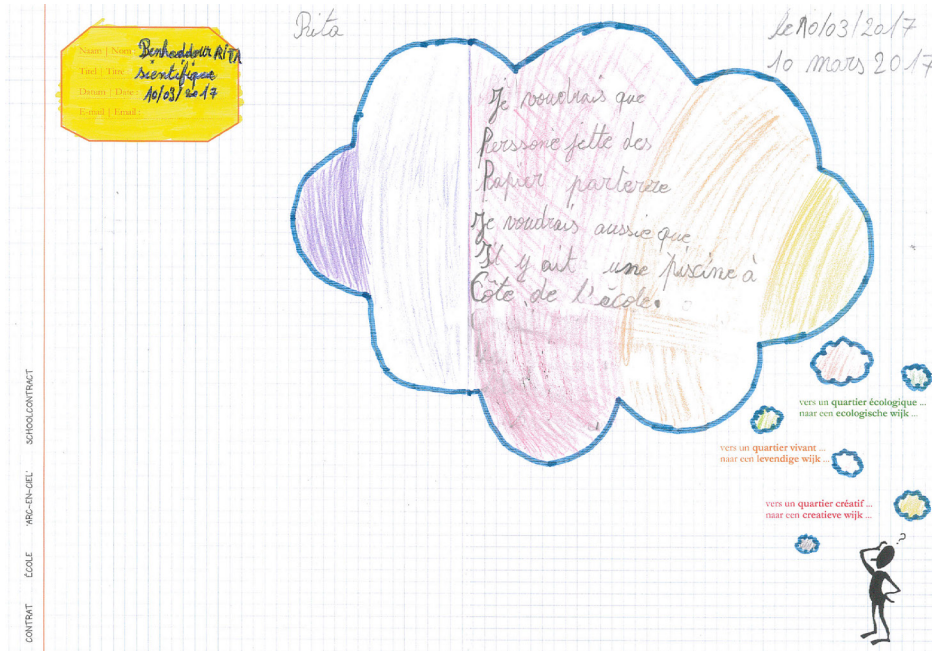 Naam | Nom : Benhaddour RITA
Titel | Titre : sientifique
Datum | Date : 10/03/2017
E-mail | Email :
Rita
le 10/03/2017
10 mars 2017
Je voudrais que
Perssone jette des
Papier parterre
Je voudrais aussie que
Il y ait une piscine à
Côte de l'école.
vers un quartier écologique ...
naar een ecologische wijk ...
vers un quartier vivant ...
naar een levendige wijk ...
vers un quartier créatif ...
naar een creatieve wijk ...
?
CONTRAT ÉCOLE 'ARC-EN-CIEL' SCHOOLCONTRACT